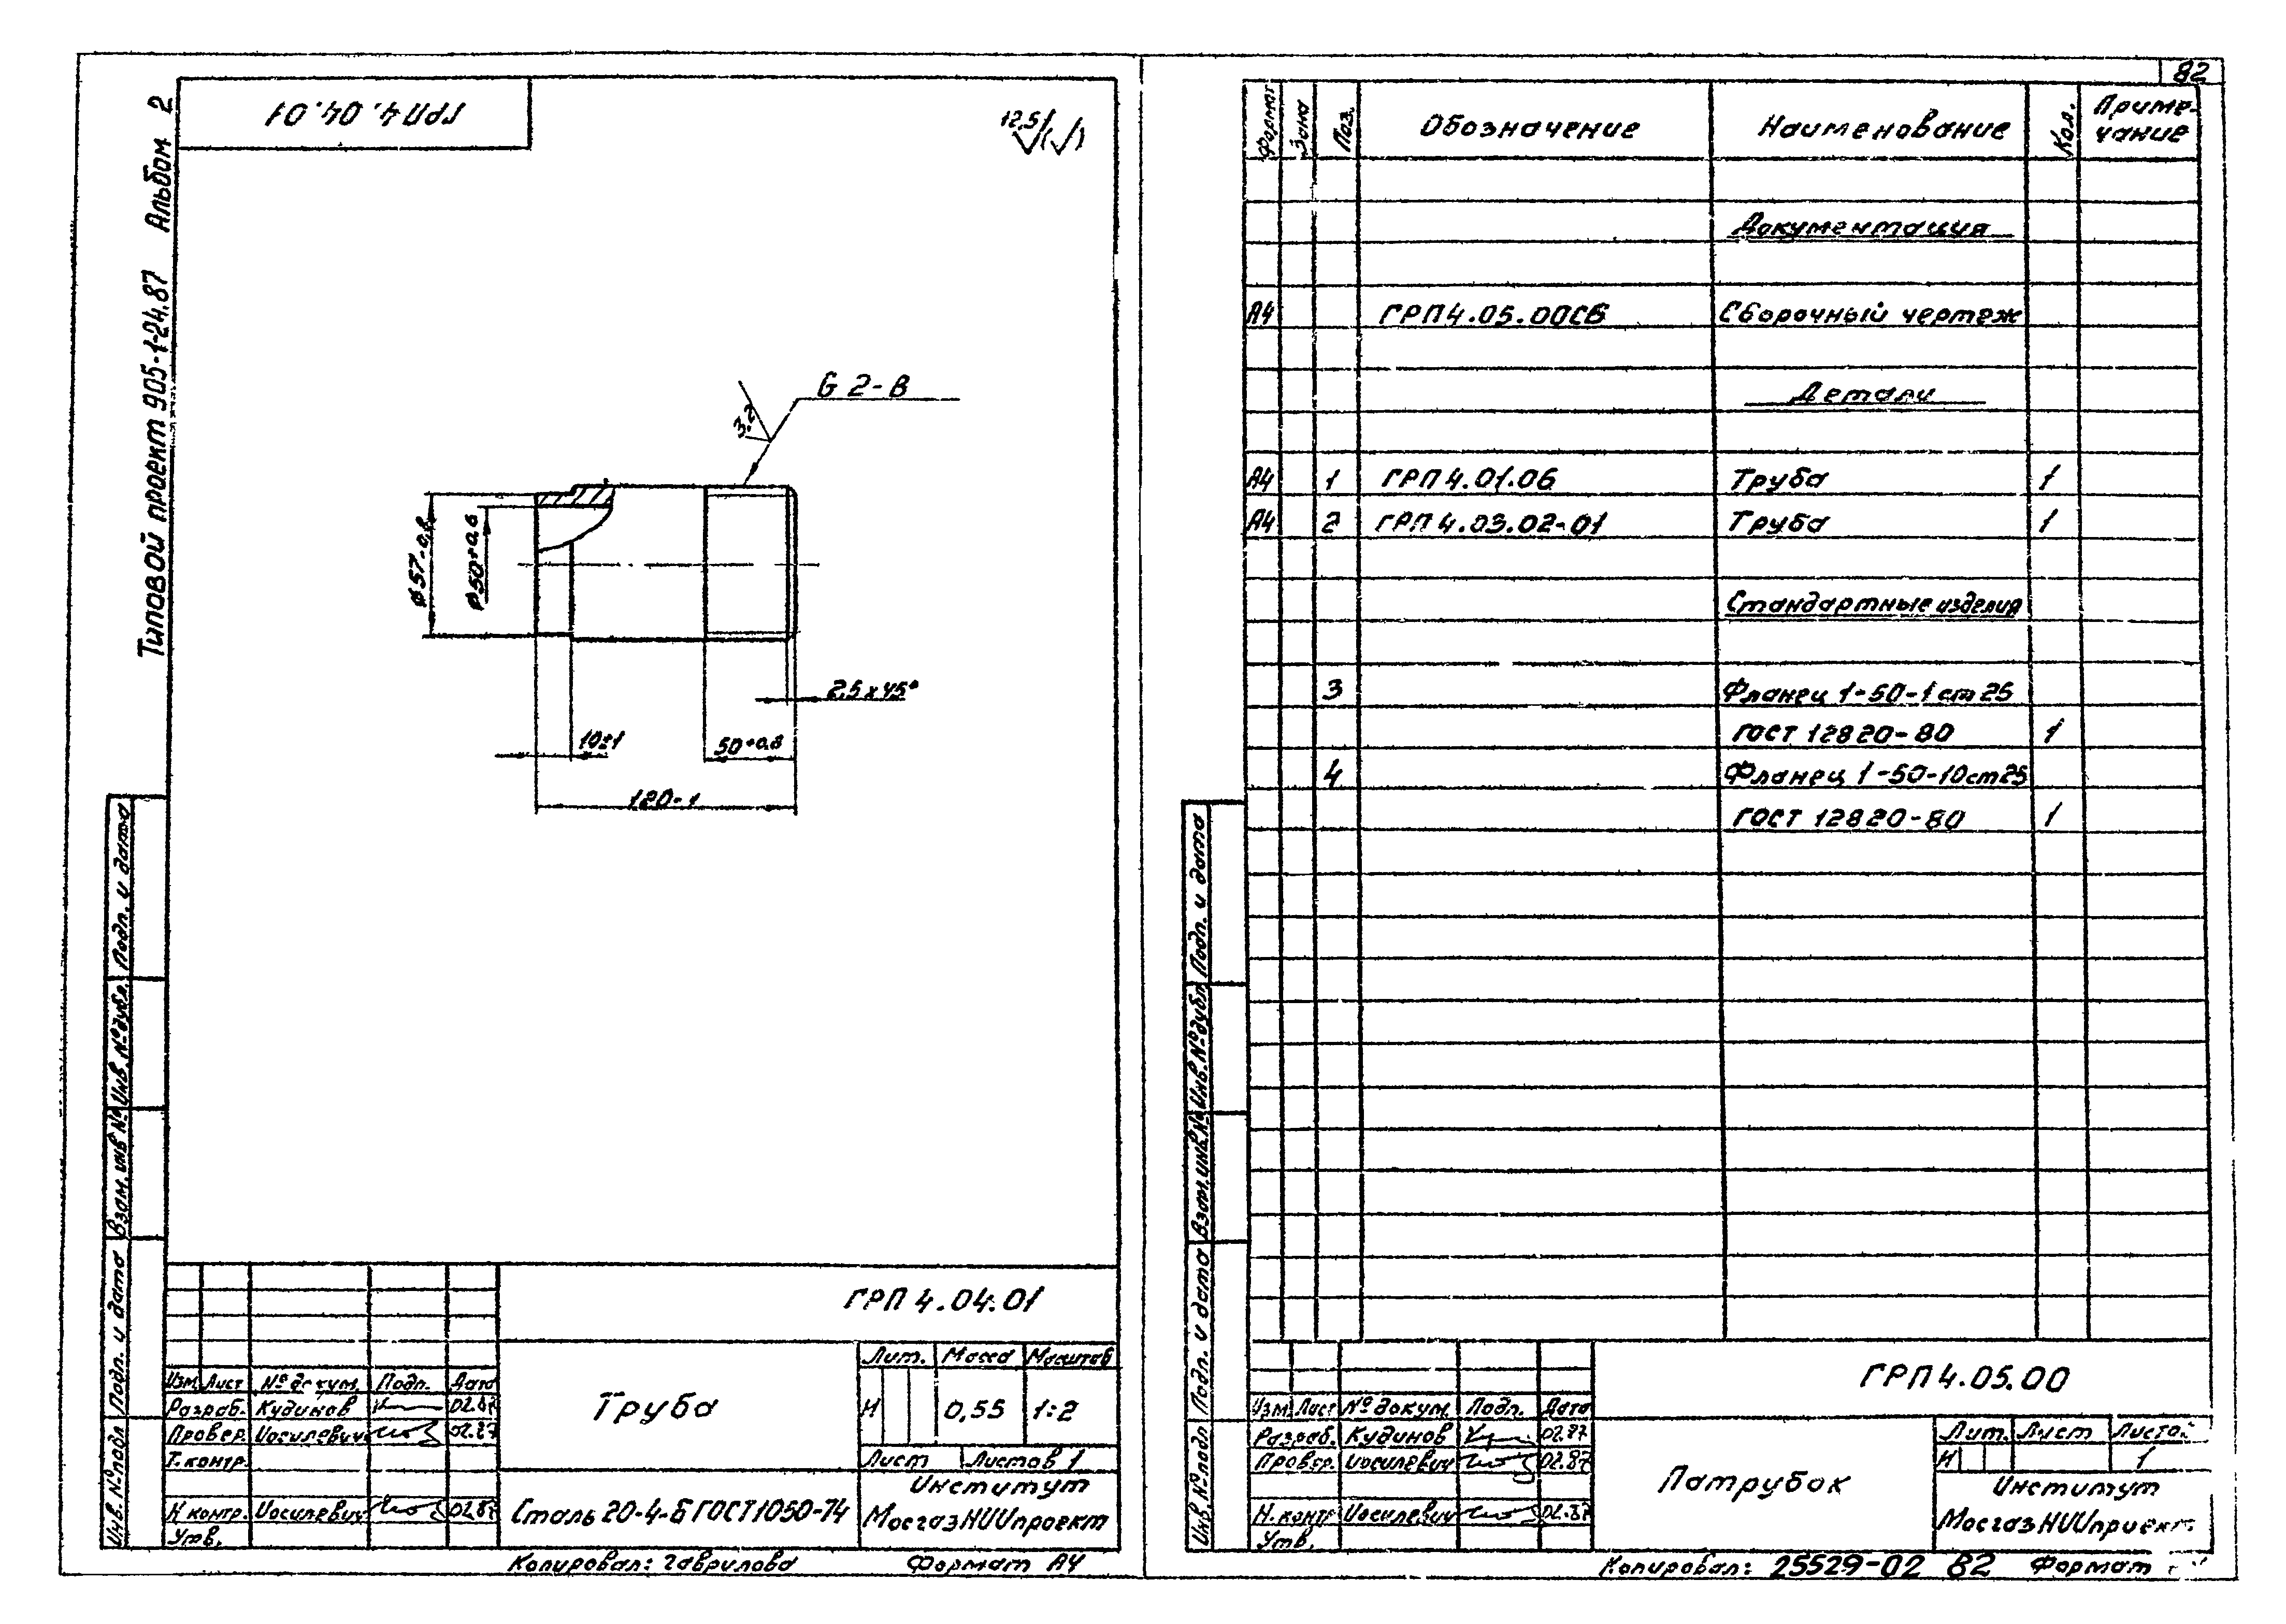 82
ГРП 4.04.01
Типовой проект 905-1-24.87 Альбом 2
12,5
G 2-В
3,2
ø57-0,8
ø50+0,6
2,5х45°
10±1
50+0,8
120-1
Подп. и дата
Инв. № дубл.
Взам. инв №
Подп. и дата
Инв. № подл
ГРП 4.04.01
Лит. Масса Масштаб
Изм Лист № докум. Подп. Дата
Труба
И 0,55 1:2
Разраб. Кудинов 02.87
Провер. Иосилевич 02.87
Т. контр.
Лист Листов 1
Н контр. Иосилевич 02.87
Утв.
Сталь 20-4-Б ГОСТ 1050-74
Институт
МосгазНИИпроект
Копировал: Гаврилова Формат А4
Формат Зона Поз. Обозначение Наименование Кол. Приме-
чание
Документация
А4 ГРП 4.05.00СБ Сборочный чертеж
Детали
А4 1 ГРП 4.01.06 Труба 1
А4 2 ГРП 4.03.02-01 Труба 1
Стандартные изделия
3 Фланец 1-50-1 ст 25
ГОСТ 12820-80 1
4 Фланец 1-50-10 ст 25
ГОСТ 12820-80 1
Подп. и дата
Инв. № дубл
Взам. инв. №
Подп. и дата
Инв. № подл
ГРП 4.05.00
Изм Лист № докум. Подп. Дата
Разраб. Кудинов 02.87
Провер. Иосилевич 02.87
Н. контр Иосилевич 02.87
Утв.
Патрубок
Лит. Лист
И 1
Институт
МосгазНИИпроект
Копировал: 25529-02 82 Формат